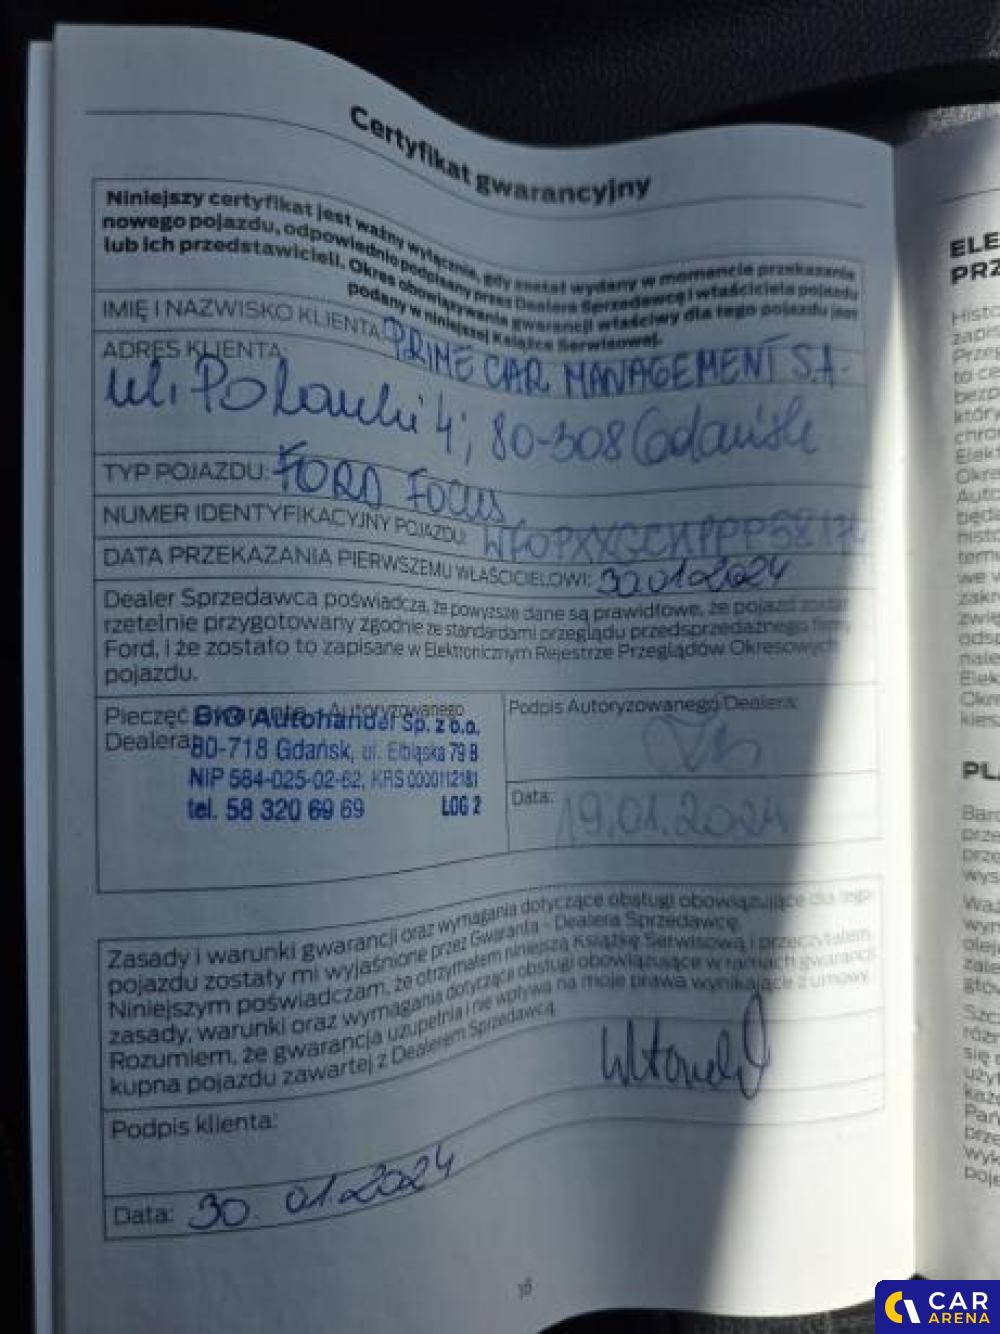 Certyfikat gwarancyjny
Niniejszy certyfikat jest ważny wyłącznie, gdy został wydany w momencie przekazania
nowego pojazdu, odpowiednio podpisany przez Dealera Sprzedawcę i właściciela pojazdu
lub ich przedstawicieli. Okres obowiązywania gwarancji właściwy dla tego pojazdu jest
podany w niniejszej Książce Serwisowej.
IMIĘ I NAZWISKO KLIENTA: PRIME CAR MANAGEMENT S.A.
ADRES KLIENTA
ul. Polanki 4, 80-308 Gdańsk
TYP POJAZDU: FORD FOCUS
NUMER IDENTYFIKACYJNY POJAZDU:
DATA PRZEKAZANIA PIERWSZEMU WŁAŚCICIELOWI: 30.01.2024
Dealer Sprzedawca poświadcza, że powyższe dane są prawidłowe, że pojazd został
rzetelnie przygotowany zgodnie ze standardami przeglądu przedsprzedażnego firmy
Ford, i że zostało to zapisane w Elektronicznym Rejestrze Przeglądów Okresowych
pojazdu.
Pieczęć Gwaranta - Autoryzowanego
Dealera
BIG Autohandel Sp. z o.o.
80-718 Gdańsk, ul. Elbląska 79 B
NIP 584-025-02-62, KRS 0000112181
tel. 58 320 69 69 LOG 2
Podpis Autoryzowanego Dealera:
Data: 19.01.2024
Zasady i warunki gwarancji oraz wymagania dotyczące obsługi obowiązujące dla tego
pojazdu zostały mi wyjaśnione przez Gwaranta - Dealera Sprzedawcę.
Niniejszym poświadczam, że otrzymałem niniejszą Książkę Serwisową i przeczytałem
zasady, warunki oraz wymagania dotyczące obsługi obowiązujące w ramach gwarancji.
Rozumiem, że gwarancja uzupełnia i nie wpływa na moje prawa wynikające z umowy
kupna pojazdu zawartej z Dealerem Sprzedawcą.
Podpis klienta:
Data: 30.01.2024
ELE
PRZ
Histo
zapis
Prze
to ce
bezp
któr
chro
Elekt
Okre
Auto
będą
histo
tem
we w
zakr
zwię
odsp
nale
Elek
Okr
kies
PLA
Barc
prze
prze
wys
Waż
wym
olej
zale
głów
Szc
różn
się z
użyt
każd
Pań
prze
wyk
poje
CAR
ARENA